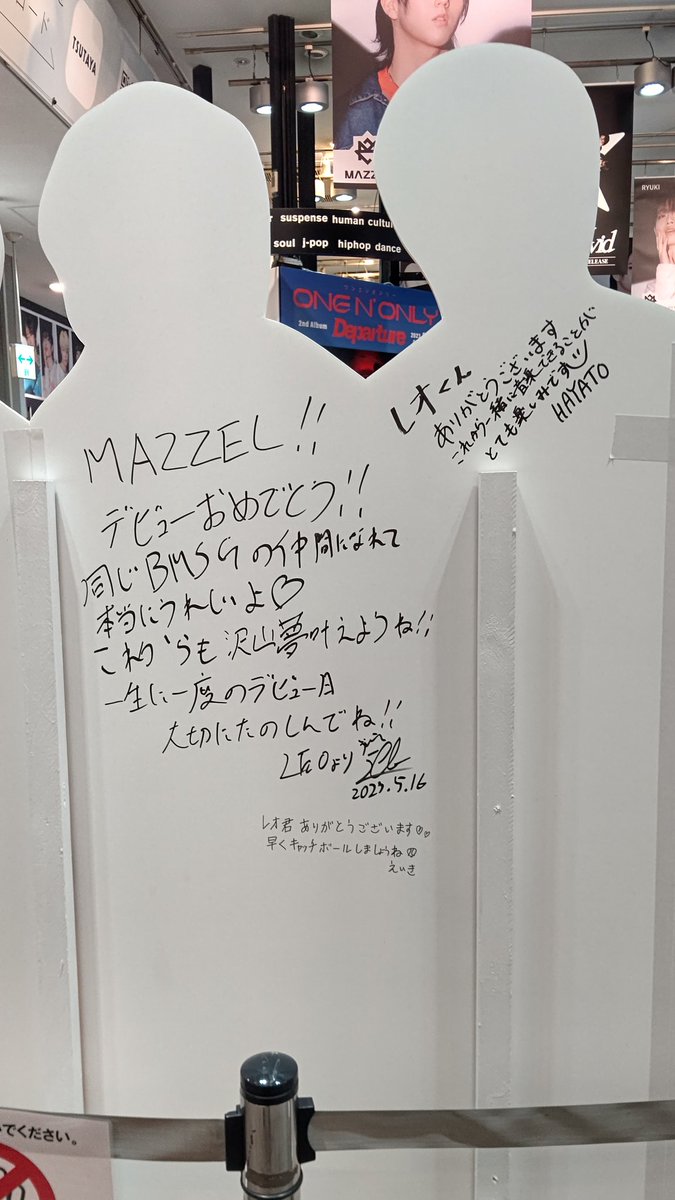 TSUTAYA
MAZZ
RYUKI
suspense human cultu
soul j-pop hiphop dance
vid
RELEASE
ワンエンオンリー
ONE N' ONLY
2nd Album
Departure
レオくん
ありがとうございます
これから一緒に音楽できることが
とても楽しみです
HAYATO
MAZZEL!!
デビューおめでとう!!
同じBMSGの仲間になれて
本当にうれしいよ♡
これからも沢山夢叶えようね!!
一生に一度のデビュー日
大切にたのしんでね!!
LEOより
2023.5.16
レオ君ありがとうございます
早くキャッチボールしましょうね
えいき
でください。